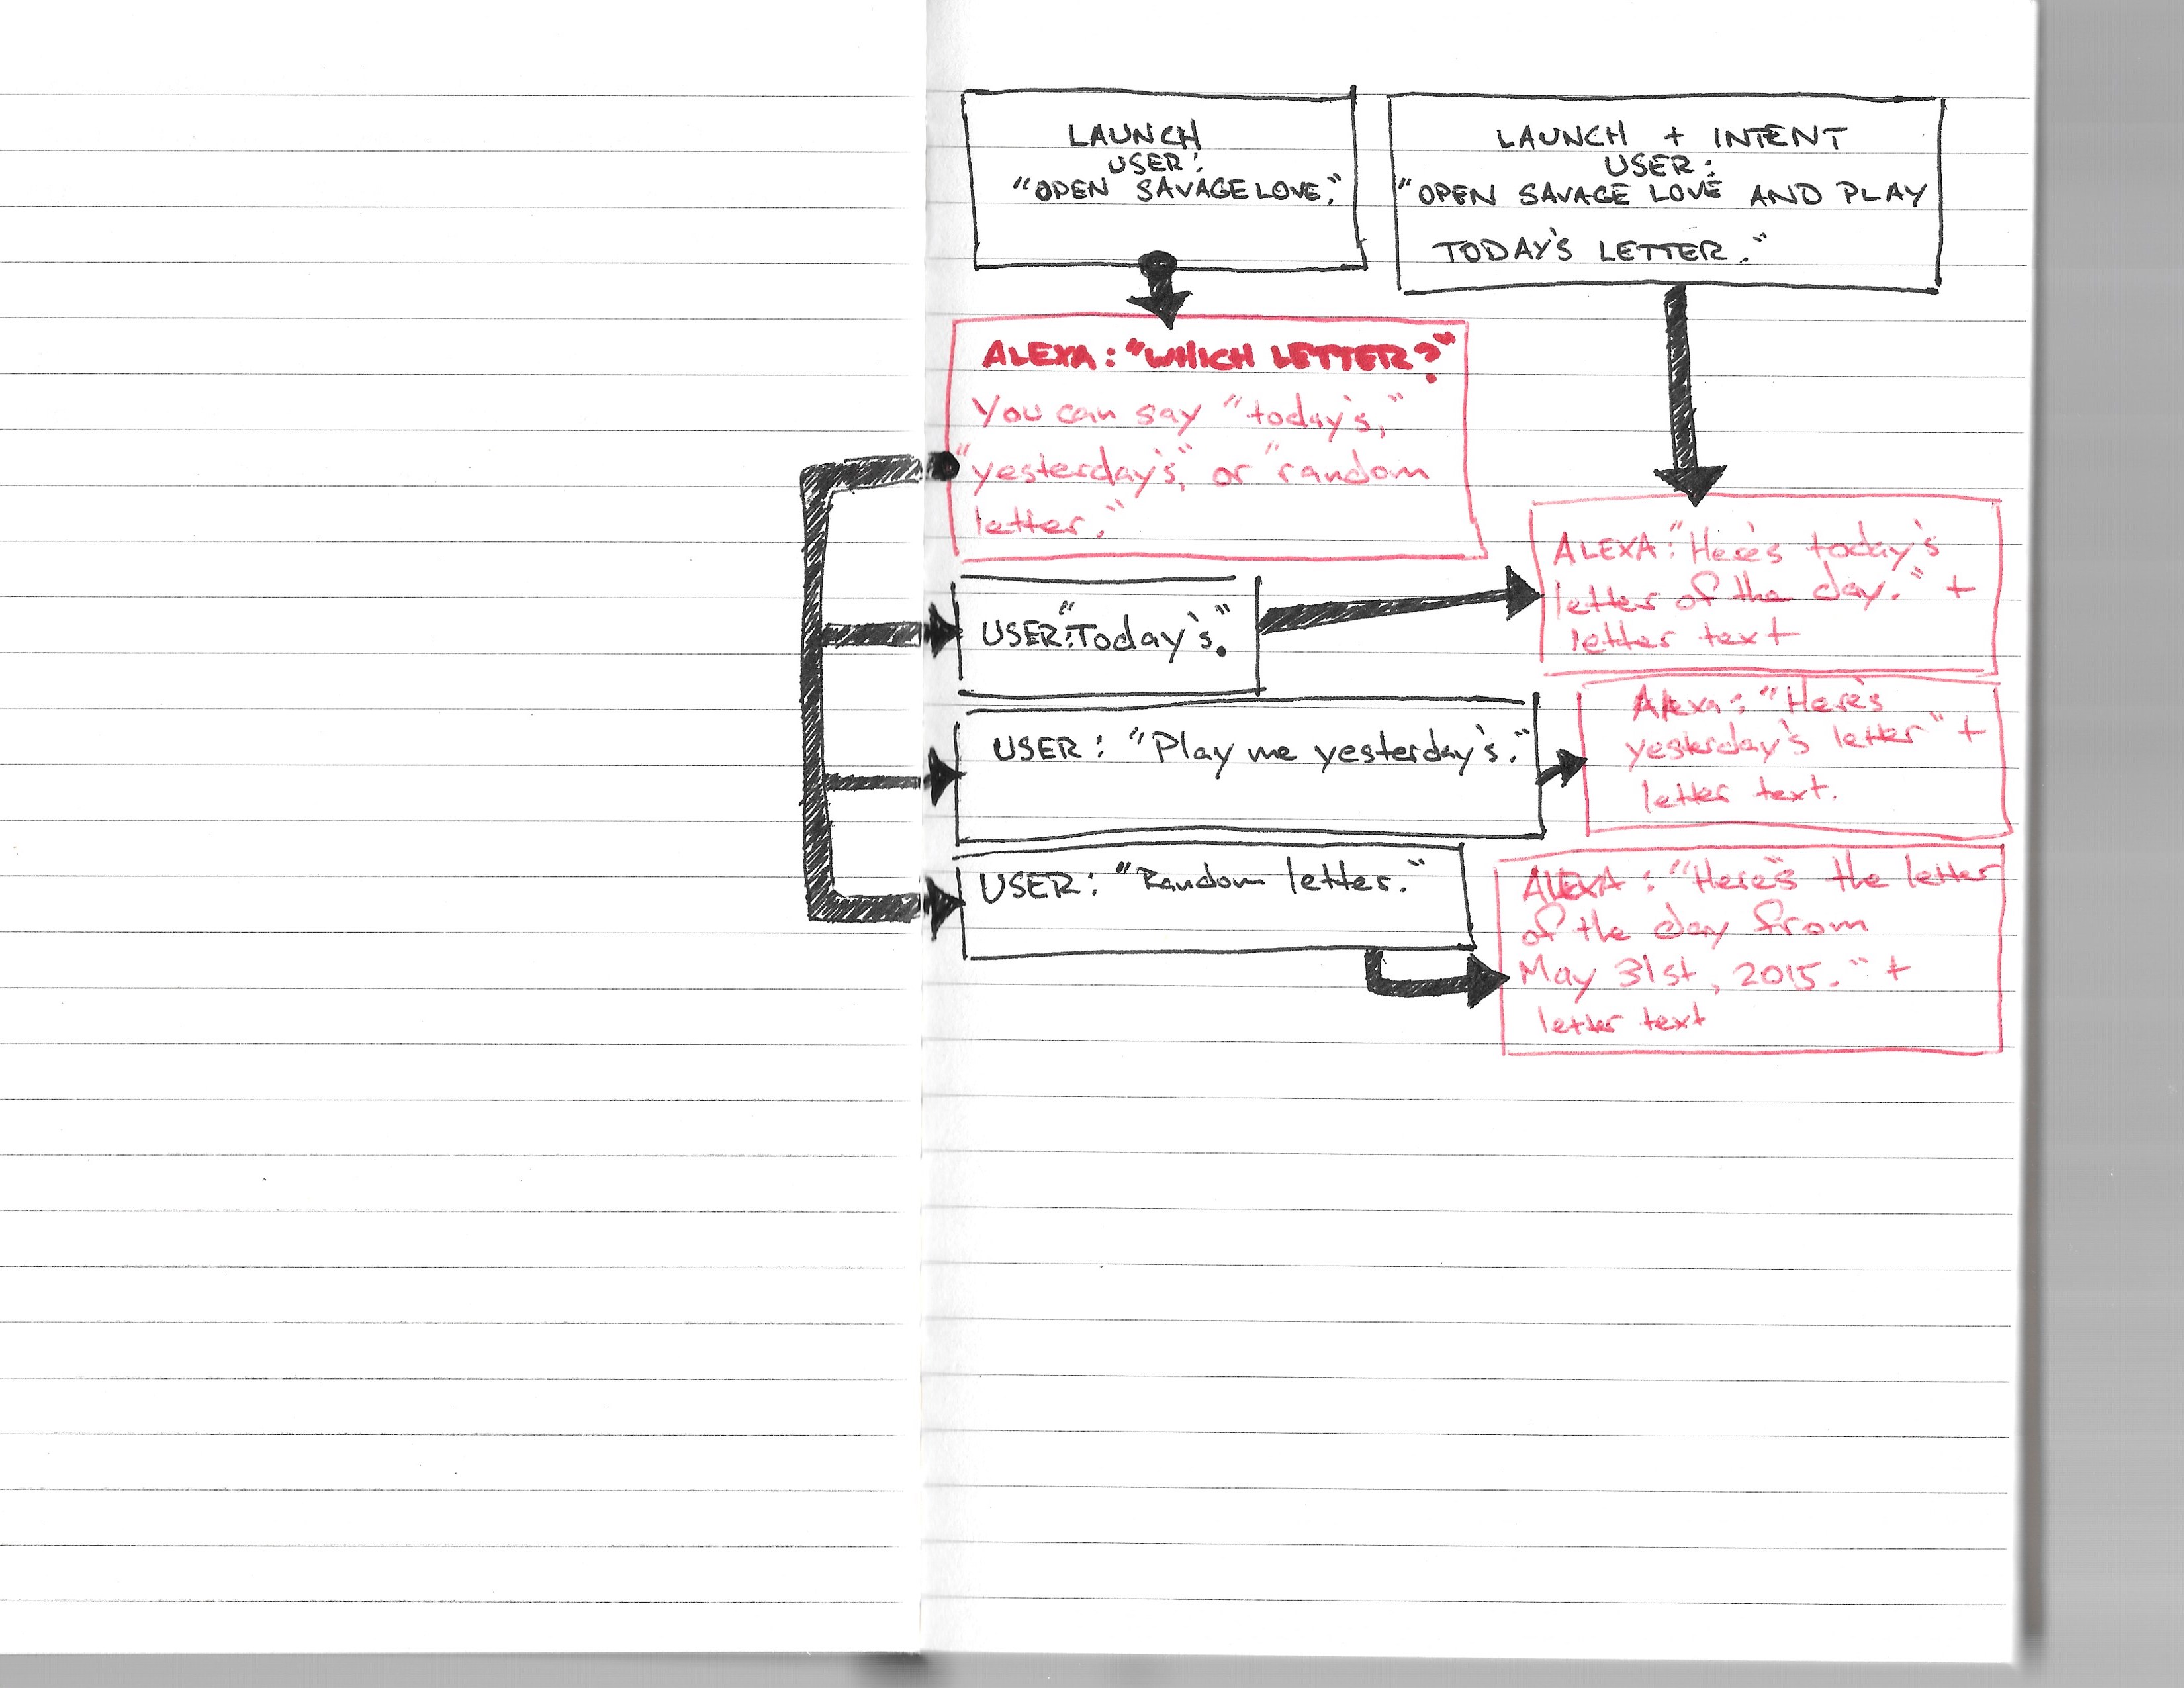 LAUNCH
USER:
"OPEN SAVAGE LOVE."
LAUNCH + INTENT
USER:
"OPEN SAVAGE LOVE AND PLAY
TODAY'S LETTER."
ALEXA: "WHICH LETTER?"
You can say "today's,"
"yesterday's," or "random
letter."
USER: "Today's."
ALEXA: "Here's today's
letter of the day." +
letter text
USER: "Play me yesterday's."
Alexa: "Here's
yesterday's letter" +
letter text.
USER: "Random letter."
ALEXA: "Here's the letter
of the day from
May 31st, 2015." +
letter text